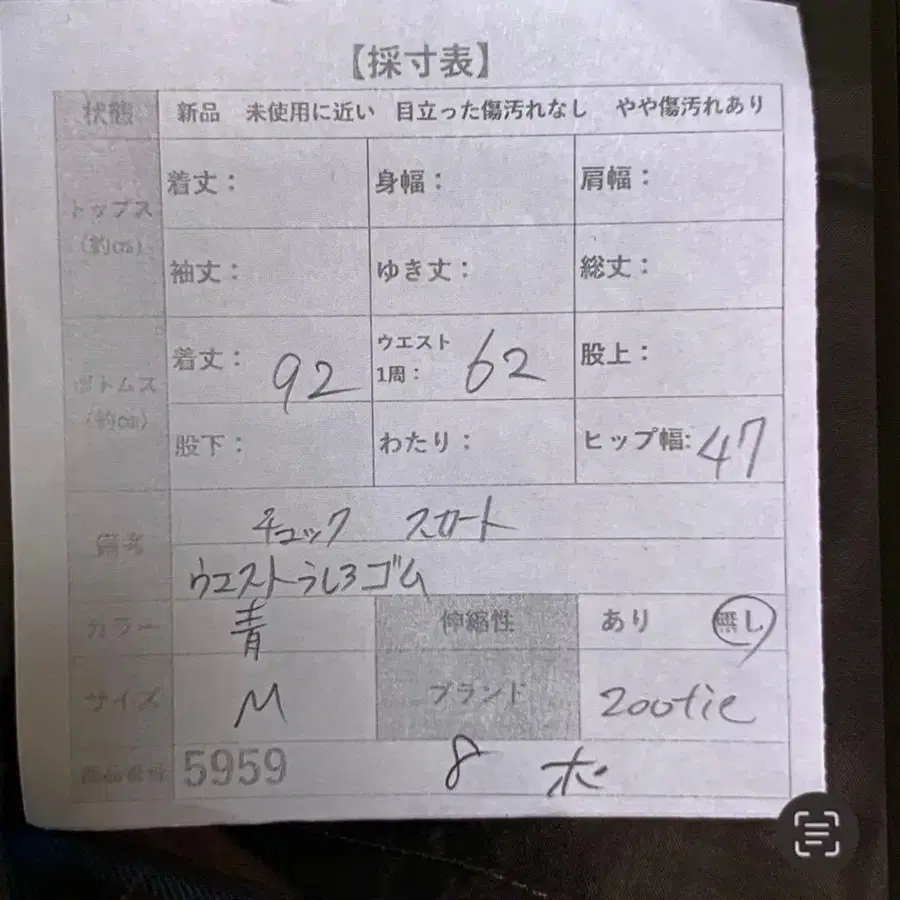 【採寸表】
状態 新品 未使用に近い 目立った傷汚れなし やや傷汚れあり
トップス（約cm） 着丈： 身幅： 肩幅：
袖丈： ゆき丈： 総丈：
ボトムス（約cm） 着丈： 92 ウエスト1周： 62 股上：
股下： わたり： ヒップ幅: 47
備考 チェック スカート
ウエストうしろゴム
カラー 青 伸縮性 あり 無し
サイズ M ブランド Zootie
商品番号 5959 8 ポ